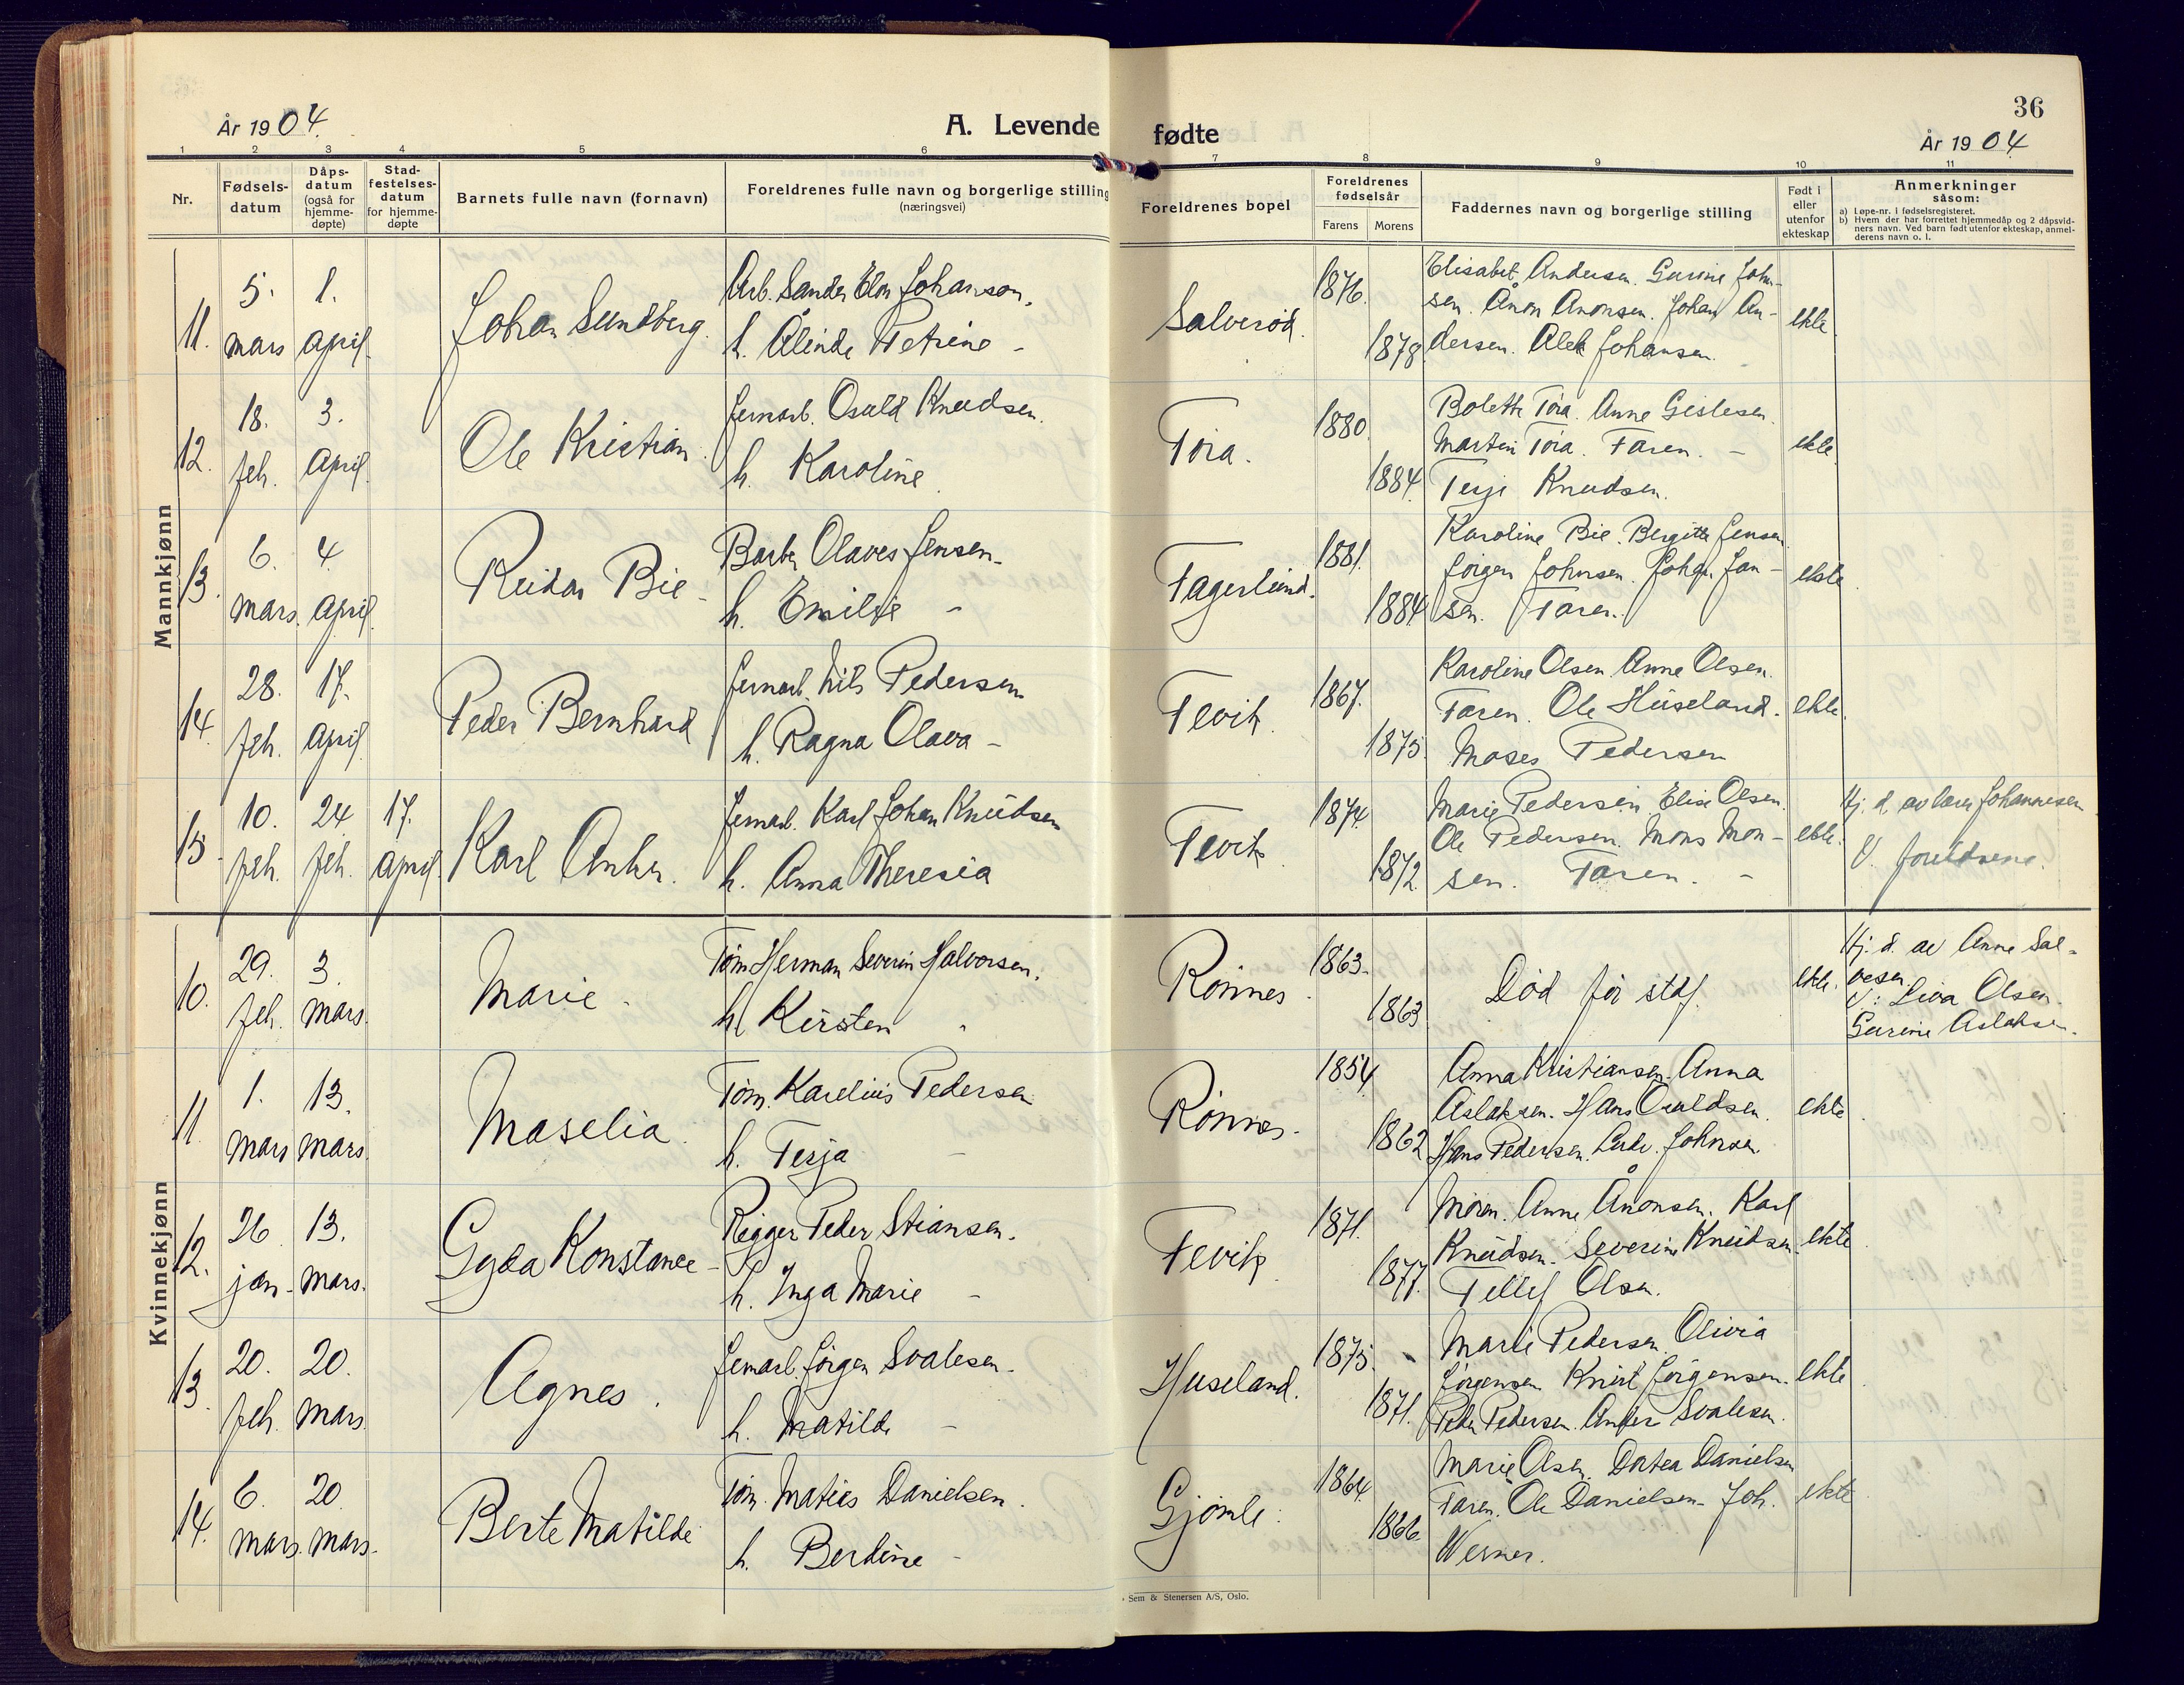 36
År 1904.
A. Levende fødte
År 1904
1 2 3 4 5 6 7 8 9 10 11
Nr.
Fødsels-
datum
Dåps-
datum
(også for
hjemme-
døpte)
Stad-
festelses-
datum
for hjemme-
døpte
Barnets fulle navn (fornavn)
Foreldrenes fulle navn og borgerlige stilling
(næringsvei)
Foreldrenes bopel
Foreldrenes
fødselsår
Farens Morens
Faddernes navn og borgerlige stilling
Født i
eller
utenfor
ekteskap
Anmerkninger
såsom:
a) Løpe-nr. i fødselsregisteret.
b) Hvem der har forrettet hjemmedåp og 2 dåpsvid-
ners navn. Ved barn født utenfor ekteskap, anmel-
derens navn o. l.
Mannkjønn
11. 5. mars 1. april Johan Sundberg.
Arb. Sander Elon Johanson.
h. Ålinde Petrine -
Salverød. 1876. 1878
Elisabet Andersen. Gurine John-
sen. Ånon Anonsen. Johan An-
dersen. Alek Johansen.
ekte
12. 18. feb. 3. april Ole Kristian.
Jernarb. Osuld Knudsen.
h. Karoline.
Tóra. 1880 1884.
Bolette Tóra. Anne Gislesen.
Martin Tóra. Faren. -
Terje Knudsen.
ekte.
13. 6. mars. 4. april Reidar Bie -
Barber Olaves Jensen -
h. Emilie -
Fagerlund. 1881. 1884
Karoline Bie. Bergitte Jensen
Jörgen Johnsen. Johan Jan-
sen. Faren.
ekte
14. 28. feb. 17. april Peder Bernhard
Jernarb. Nils Pedersen
h. Ragna Olava -
Fevik. 1867. 1875.
Karoline Olsen. Anne Olsen.
Faren. Ole Huseland.
Moses Pedersen
ekte.
15. 10. feb. 24 feb. 17. april Karl Anker.
Jernarb. Karl Johan Knudsen
h. Anna Theresia
Fevik. 1874. 1872.
Marie Pedersen. Elise Olsen.
Ole Pedersen. Mons Mon-
sen. Faren. -
ekte.
Hj. d. av lærer Johannesen
V. foreldrene.
Kvinnekjønn
10. 29. feb. 3. mars. Marie.
Tóm. Herman Severin Halvorsen.
h. Kirsten
Rónnes. 1863. 1863
Död för stdf.
ekte.
Hj. d. av Anne Sal-
vesen.
V: Liva Olsen.
Gurine Aslaksen.
11. 1. mars 13. mars. Maselia.
Tóm. Karelius Pedersen
h. Terja -
Rónnes. 1854 1862
Anna Kristiansen. Anna
Aslaksen. Hans Osuldsen.
Hans Pedersen. Johnsen.
ekte
12. 26. jan. 13. mars. Gyda Konstance -
Rigger Peder Stiansen.
h. Inga Marie -
Fevik. 1871. 1877.
Moren. Anne Ånonsen. Karl
Knudsen. Severine Knudsen.
Tellef Olsen.
ekte
13. 20. feb. 20. mars. Agnes.
Jernarb. Jörgen Svalesen -
h. Matilde -
Huseland. 1875. 1871.
Marie Pedersen. Olivia
Jörgensen Knut Jörgensen.
Peder Pedersen. Svalesen.
ekte
14. 6. mars. 20 mars. Berte Matilde
Tóm. Matias Danielsen.
h. Berdine -
Gjómle. 1864. 1866.
Marie Olsen. Dortea Danielsen
Faren. Ole Danielsen. Joh.
Werner.
ekte
Sem & Stenersen A/S, Oslo.